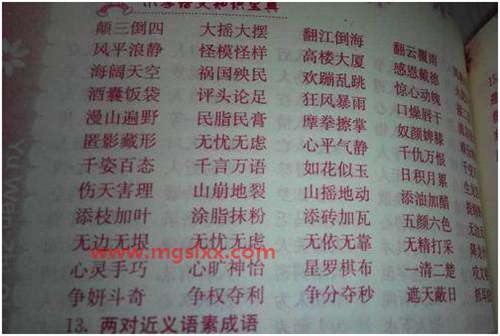 颠三倒四 大摇大摆 翻江倒海 翻云覆雨
风平浪静 怪模怪样 高楼大厦 感恩戴德
海阔天空 祸国殃民 欢蹦乱跳 惊心动魄
酒囊饭袋 评头论足 狂风暴雨 口燥唇干
漫山遍野 民脂民膏 摩拳擦掌 奴颜婢膝
匿影藏形 无忧无虑 心平气静 千仇万恨
千姿百态 千言万语 如花似玉 日积月累
伤天害理 山崩地裂 山摇地动 添油加醋
添枝加叶 涂脂抹粉 添砖加瓦 五颜六色
无边无垠 无忧无虑 无依无靠 无精打采
www.mgslxx.com
心灵手巧 心旷神怡 星罗棋布 一清二楚
争妍斗奇 争权夺利 争分夺秒 遮天蔽日
13. 两对近义语素成语